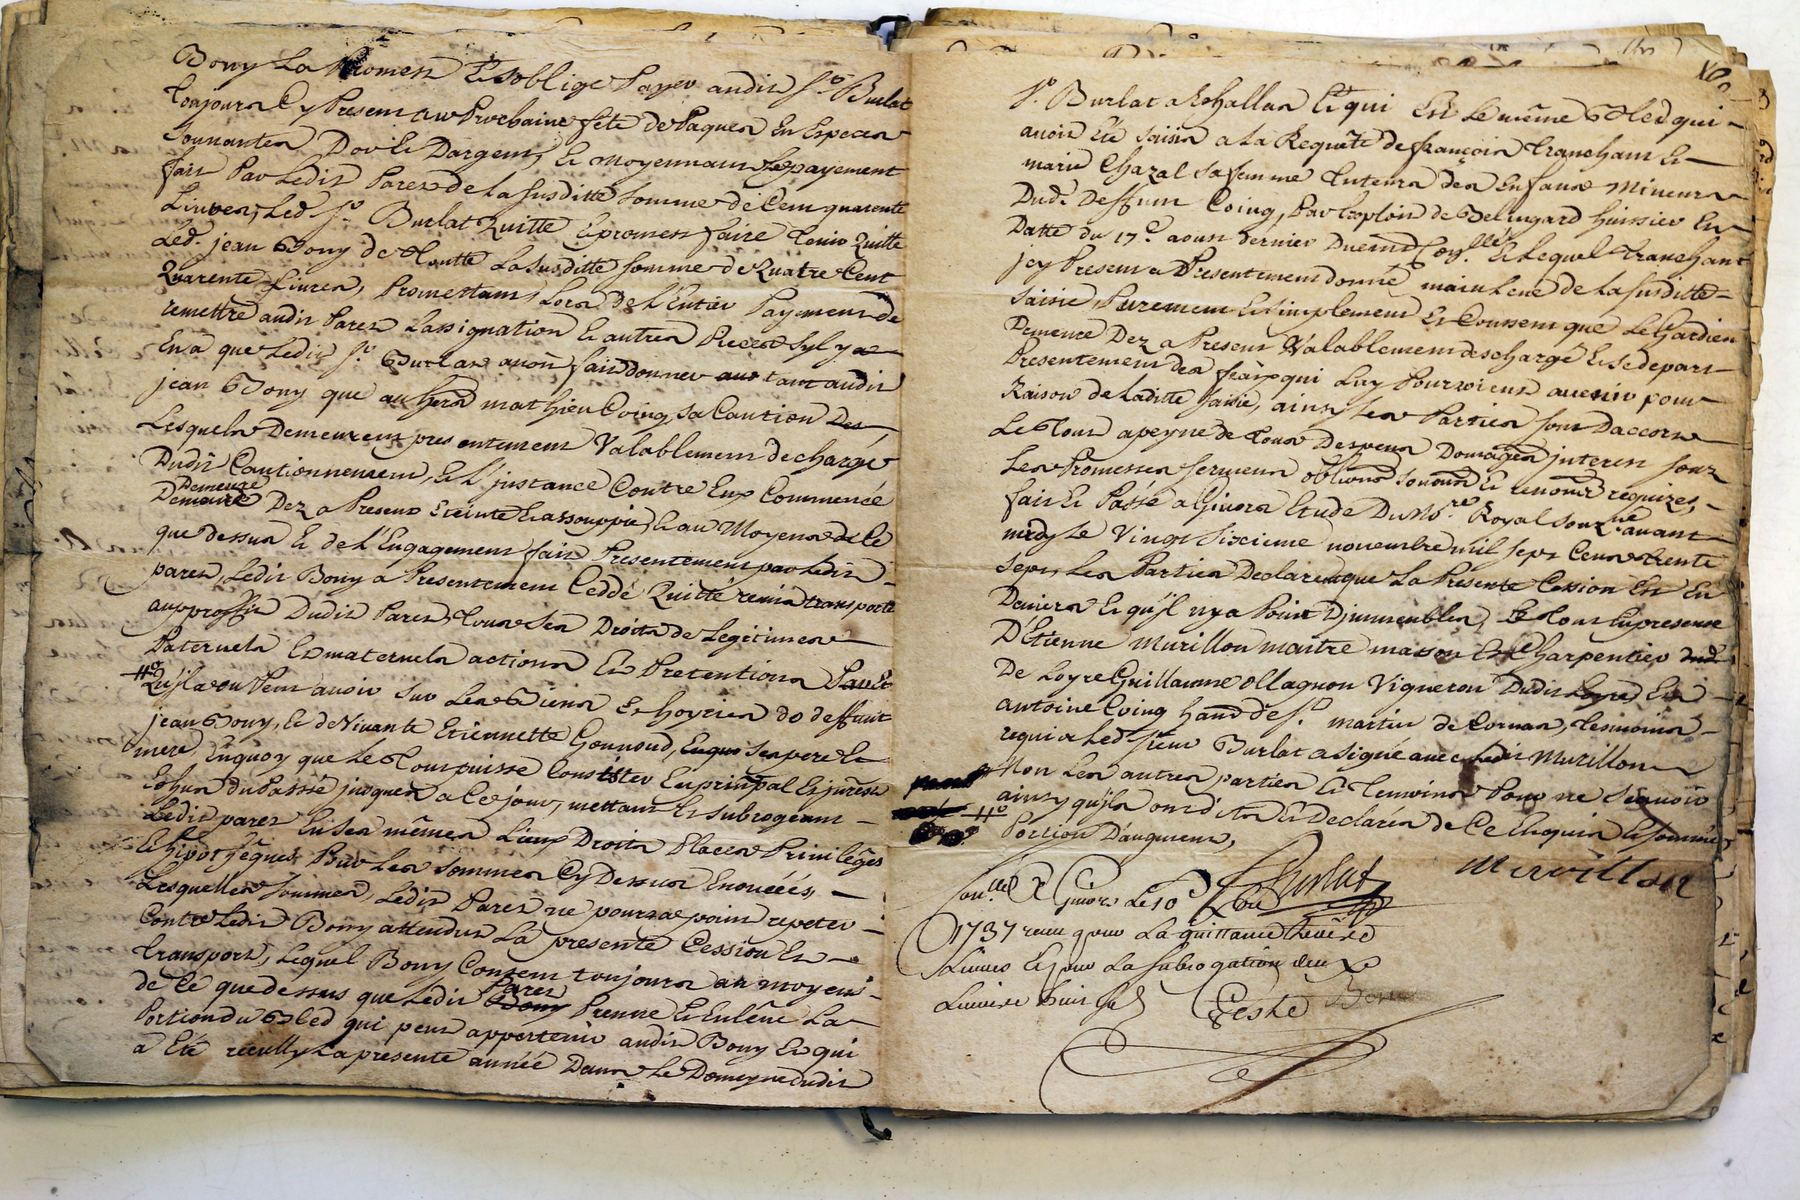 Bony La promess Et soblige Payer audit Sr. Burlat
toujours Cy Present aux Prochaine fete de Paques En Especes
sonnantes Dor Et Dargent, Et moyennant Le payement
fait Par Ledit Paret de La susditte somme de Cent quarente
Livres, Led. Sr. Burlat Quitte Epromest faire tenir Quitte
Led. jean Bony de Toutte La susditte somme de Quatre Cent
Quarente Livres, Promettant Lors de L'Entier Payement de
remettre audit Paret Lassignation Et autres Pieces Syl y a
En a que Ledit Sr. Burlat avoit fait donner aus tant audit
jean Bony que au Sr. mathieu Coing sa Caution Des
Lesquels Demeurent presentement Valablement dechargé
Dudit Cautionnement, Et L'jnstance Contre Eux Commencé
Demeure
Demeure Dez a Present Eteinte Et assouppie, Et au Moyens de Ce
que dessus Et de L'Engagement fait Presentement par Ledit
paret, Ledit Bony a Presentement Ceddé Quitté remis transporté
au proffit Dudit Paret, Tous Ses Droits de Legitimes
Paternels Et maternels actions Et Pretentions Part Et
#° Qu'jl a ou Peut avoir Sur Les Biens Et hoyries de deffunt
jean Bony, Et de Vivante Etiennette Gounoud, Enquo ses pere Et
mere, Enquoy que Le Tout puisse Consister En prinpal Et jnterest
Echus du Passé jusques a Ce jour, mettant Et subrogeant
Ledit paret En Ses mêmes Lieux Droits Places Privilêges
Et hipotêques Par Les sommes Cy Dessus Enoncées,
Lesquelles sommes, Ledit Paret ne pourra point repeter
Contre Ledit Bony attendus La presente Cession Et
transport, Lequel Bony Consent toujours au moyens
de Cé que dessus que Ledit Paret
Bony Prenne Et Enlêve La
Portion du Bled qui peut appartenir audit Bony Et qui
a Eté recully La presente année Dans Le Domeyne dudit
Sr. Burlat a Echallas Et qui Est Le même Bled qui
avoit Eté Saisis a La Requête de françois tranchant Et
marie Chazal Sa femme Tuteurs des Enfans Mineurs
Dud. Deffunt Coing, Par Exploit de Belingard huissier En
Datte du 17e. aoust dernier Duement Conllé. Et Lequel tranchant
jcy Present a Presentement donné main Levé de La susditte
Saisie Purement Et simplement Et Conssent que Le Gardien
Demeure Dez a Present Valablement deschargé Et se depart
Presentement des fraix qui Luy Pourroient avenir pour
Raison de Laditte Saisie, ainsy Les Parties Sont Daccord
Le Tout a peyne de Tous Despens Domages jnterest sous
Les Promesses Serment obliõns soumõns Et renonõns requizes,
fait Et Passé a Givors Etude Du Nore. Royal souzné avant
midy Le Vingt Sixieme novembre mil sept Cent trente
Sept, Les Parties Declarent que La Presente Cession Est En
Deniers Et qu'jl ny a Point D'jmmeubles, Le Tout En presence
D'Etienne Murillon maitre masson Et Charpentier dud.
De Loyre Guillaume ollagnon Vigneron Dudit Loyre, Et
antoine Coing hant de St. martin de Cornas, tesmoins
requis Led. Sieur Burlat a signé avec Ledit Murillon
Non Les autres parties Et Temoins Pour ne Sçavoir
ainsy qu'jls ont dit Et Declarés de Ce Enquis Et sommés
#° Portion D'augment,
Burlat
Murillon
Conllé. A Givors Le 10e Xbre
1737 receu pour La quittance
Livres Et pour La subrogation deux
Livres huit sols
Teste